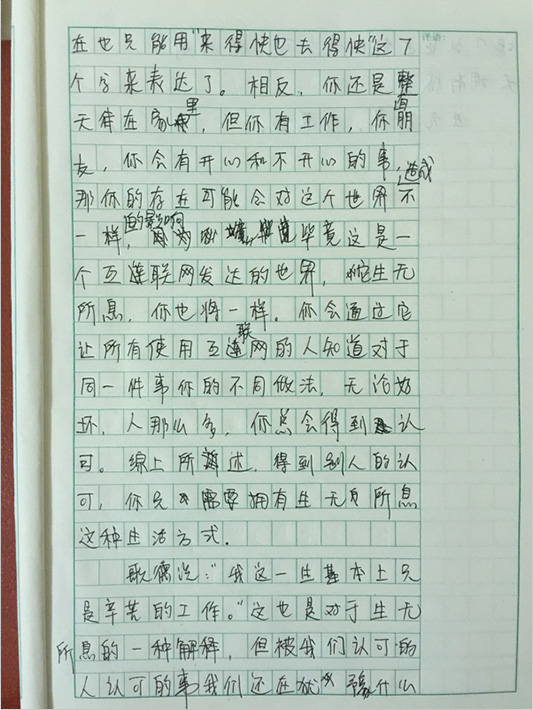 在也只能用“来得快也去得快”这7
个字来表达了。相反，你还是整
天待在家里，但你有工作，你有朋
友，你会有开心和不开心的事，
那你的存在可能会对这个世界造成不
一样的影响，毕竟这是一
个互联网发达的世界，它生无
所息，你也将一样。你会通过它
让所有使用互联网的人知道对于
同一件事你的不同做法，无论好
坏，人那么多，你总会得到认
可。综上所述，得到别人的认
可，你只需要拥有生无所息
这种生活方式．
歌德说：“我这一生基本上只
是辛苦的工作。”这也是对于生无
所息的一种解释，但被我们认可的
人认可的事我们还在犹豫什么